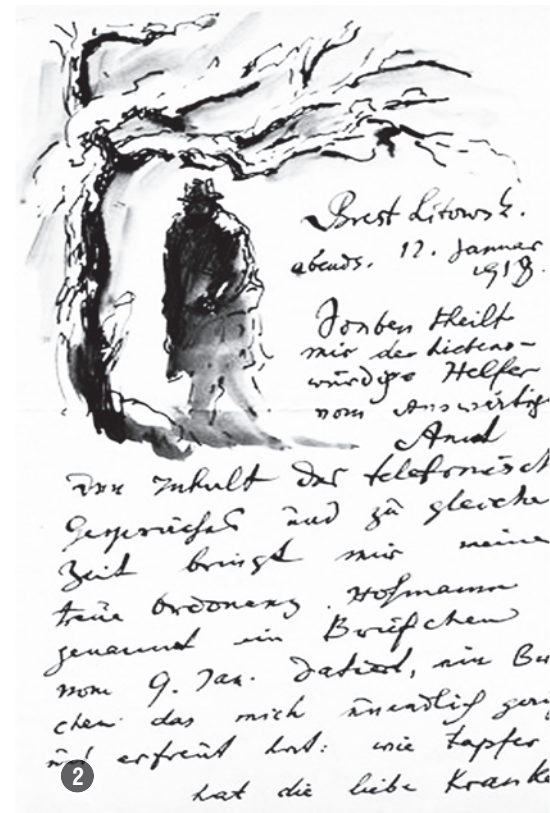 Brest Litowsk.
abends. 12. Januar
1918.
Soeben theilt
mir der liebens-
würdige Helfer
vom Auswärtig
Amt
den Inhalt des telefonisch
Gespräches und zu gleiche
Zeit bringt mir meine
treue Ordonanz Hofmann
genannt ein Briefchen
vom 9. Jan. datiert, ein
chen das mich unendlich
und erfreut hat: wie tapfer
hat die liebe Kranke
2